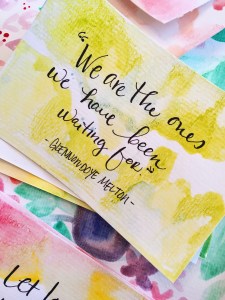 "We are the ones
we have been
waiting for"
- GLENNON DOYLE MELTON -
Let